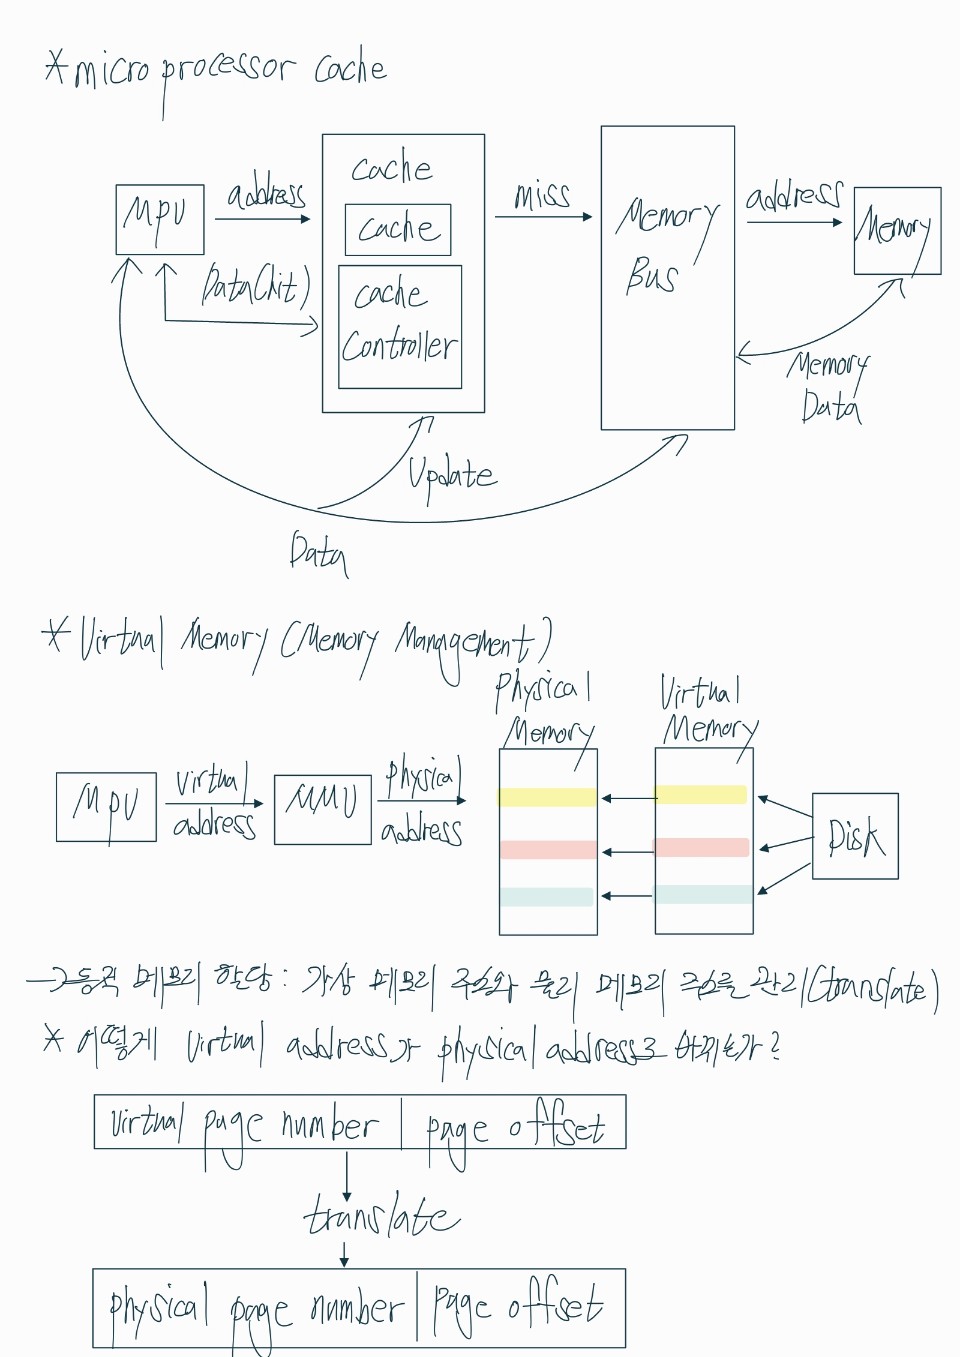 * microprocessor cache
MPU
address
Data(hit)
cache
cache
cache
Controller
miss
Memory
Bus
address
Memory
Memory
Data
Update
Data
* Virtual Memory (Memory Management)
MPU
virtual
address
MMU
physical
address
Physical
Memory
Virtual
Memory
Disk
→ 동적 메모리 할당 : 가상 메모리 주소와 물리 메모리 주소를 관리(translate)
* 어떻게 virtual address가 physical address로 바뀌는가?
virtual page number | page offset
translate
physical page number | page offset